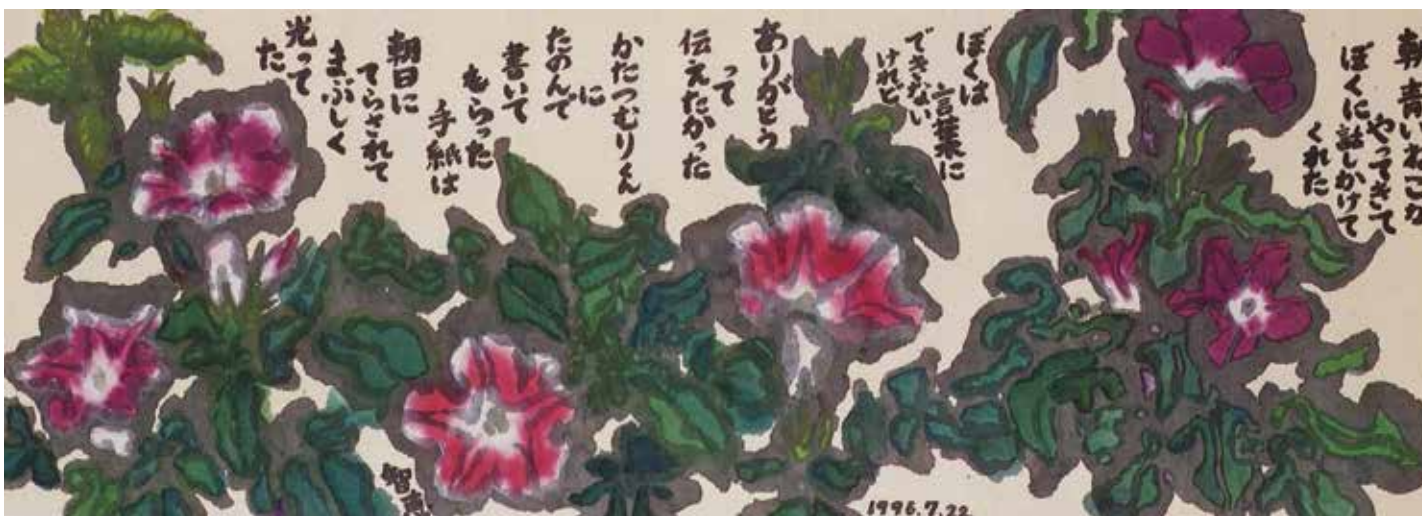 朝 青いねこが
やってきて
ぼくに話しかけて
くれた
ぼくは
言葉に
できない
けれど
ありがとう
って
伝えたかった
かたつむりくん
に
たのんで
書いて
もらった
手紙は
朝日に
てらされて
まぶしく
光って
た
智恵
1996.7.22